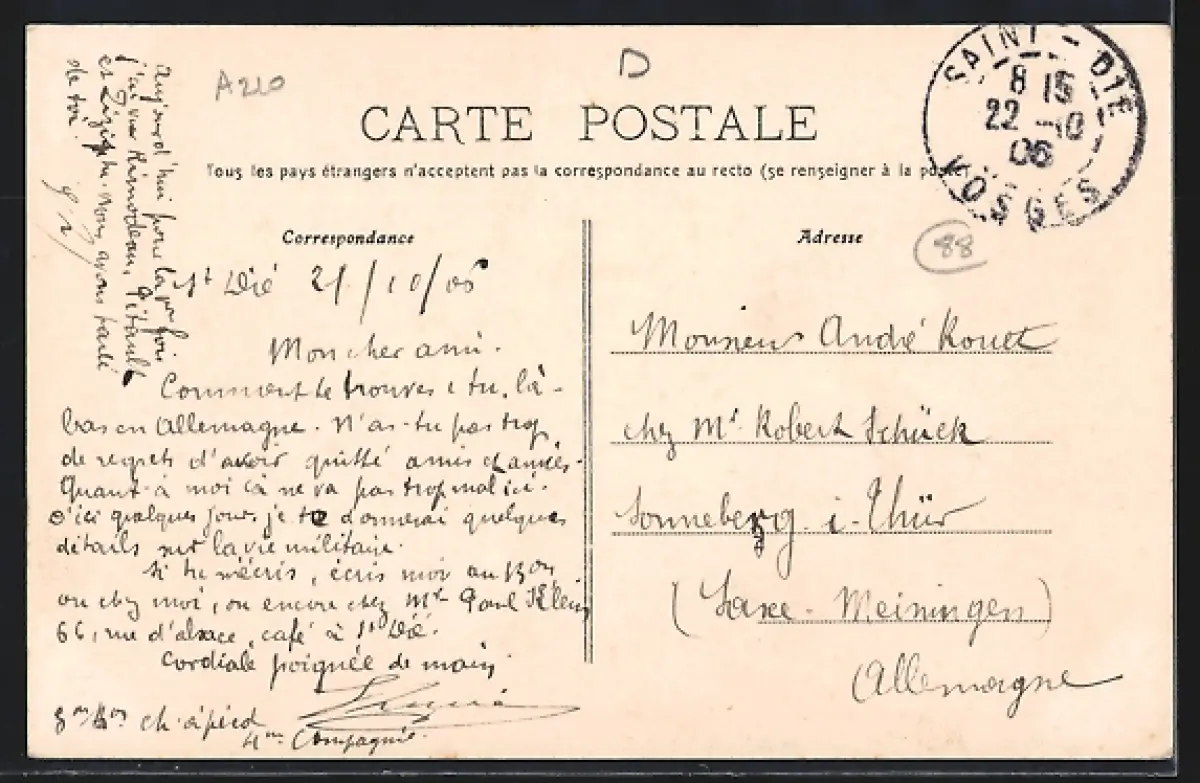 A220
D
CARTE POSTALE
Tous les pays étrangers n'acceptent pas la correspondance au recto (se renseigner à la poste)
SAINT-DIÉ
8 15
22 -10
06
VOSGES
88
Correspondance
St Dié 21/10/06
Mon cher ami.
Comment te trouves-tu, là-
bas en Allemagne. N'as-tu pas trop
de regrets d'avoir quitté amis et amies.
Quant à moi ça ne va pas trop mal ici.
D'ici quelques jours je te donnerai quelques
détails sur la vie militaire.
Si tu m'écris, écris moi au Bon
ou chez moi, ou encore chez Mr Paul Klein
66, rue d'alsace, café à St Dié.
Cordiale poignée de main
8me Bon ch. à pied
4me Compagnie.
Aujourd'hui pour la fois
j'ai vu
et Nous avons parlé
de toi.
Adresse
Monsieur André Rouet
chez Mr Robert Schück
Sonneberg i. Thür
(Saxe-Meiningen)
Allemagne